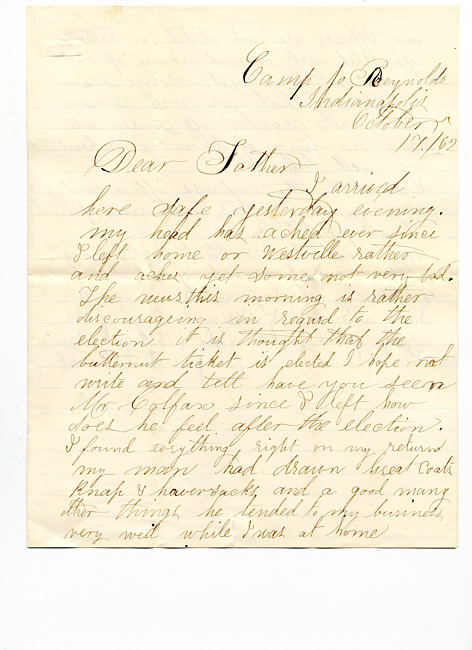 Camp Jo Reynolds
Indianapolis
October
17/62
Dear Father
I arrived
here safe yesterday evening.
my head has ached ever since
I left home or Westville rather
and aches yet some not very bad.
The news this morning is rather
discourageing in regard to the
election it is thought that the
butternut ticket is elected I hope not
write and tell have you seen
Mr Colfax since I left how
does he feel after the election.
I found evrything right on my return
my man had drawn Great Coats
Knap & haversacks, and a good many
other things he tended to my business
very well while I was at home